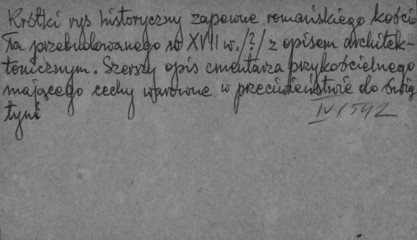 Krótki rys historyczny zapewne romańskiego kościo
ła przebudowanego w XVII w. /?/ z opisem architek-
tonicznym. Szerszy opis cmentarza przykościelnego
mającego cechy warowne w przeciwieństwie do świą
tyni
IV 1542